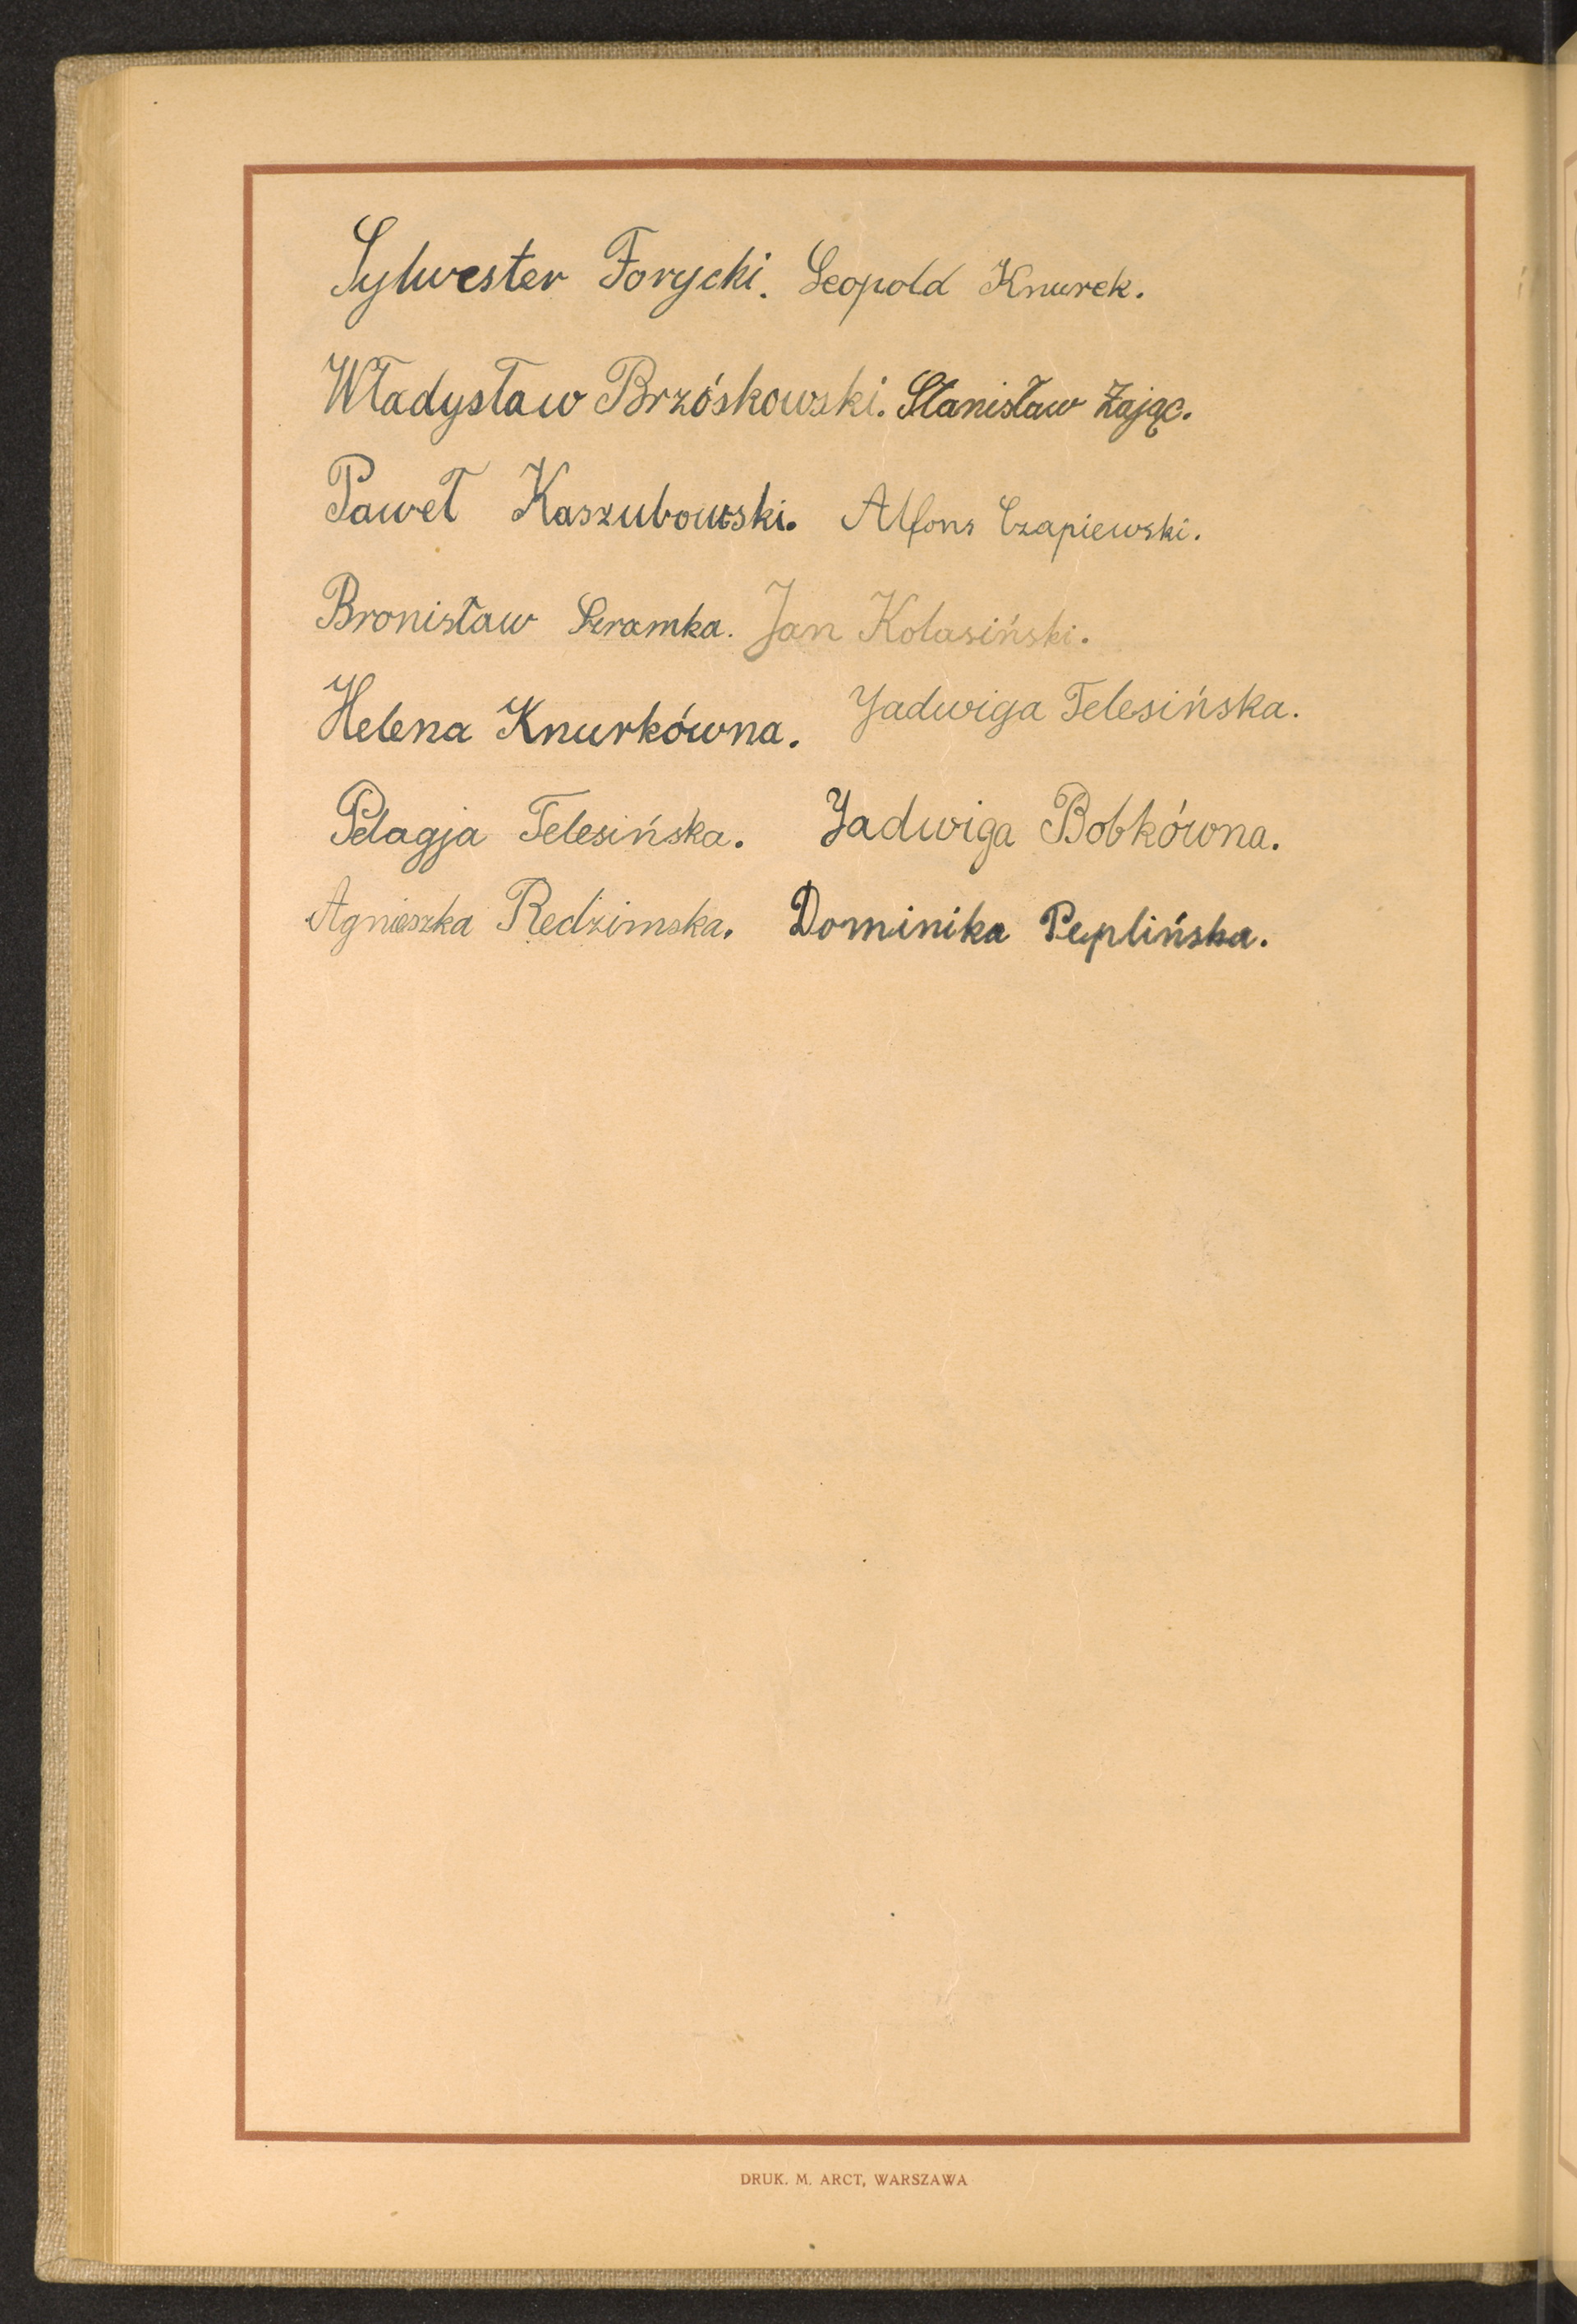 Sylwester Forycki. Leopold Knurek.
Władysław Brzóskowski. Stanisław Zając.
Paweł Kaszubowski. Alfons Czapiewski.
Bronisław Szramka. Jan Kolasiński.
Helena Knurkówna. Jadwiga Telesińska.
Pelagja Telesińska. Jadwiga Bobkówna.
Agnieszka Redzimska. Dominika Peplińska.
DRUK. M. ARCT, WARSZAWA